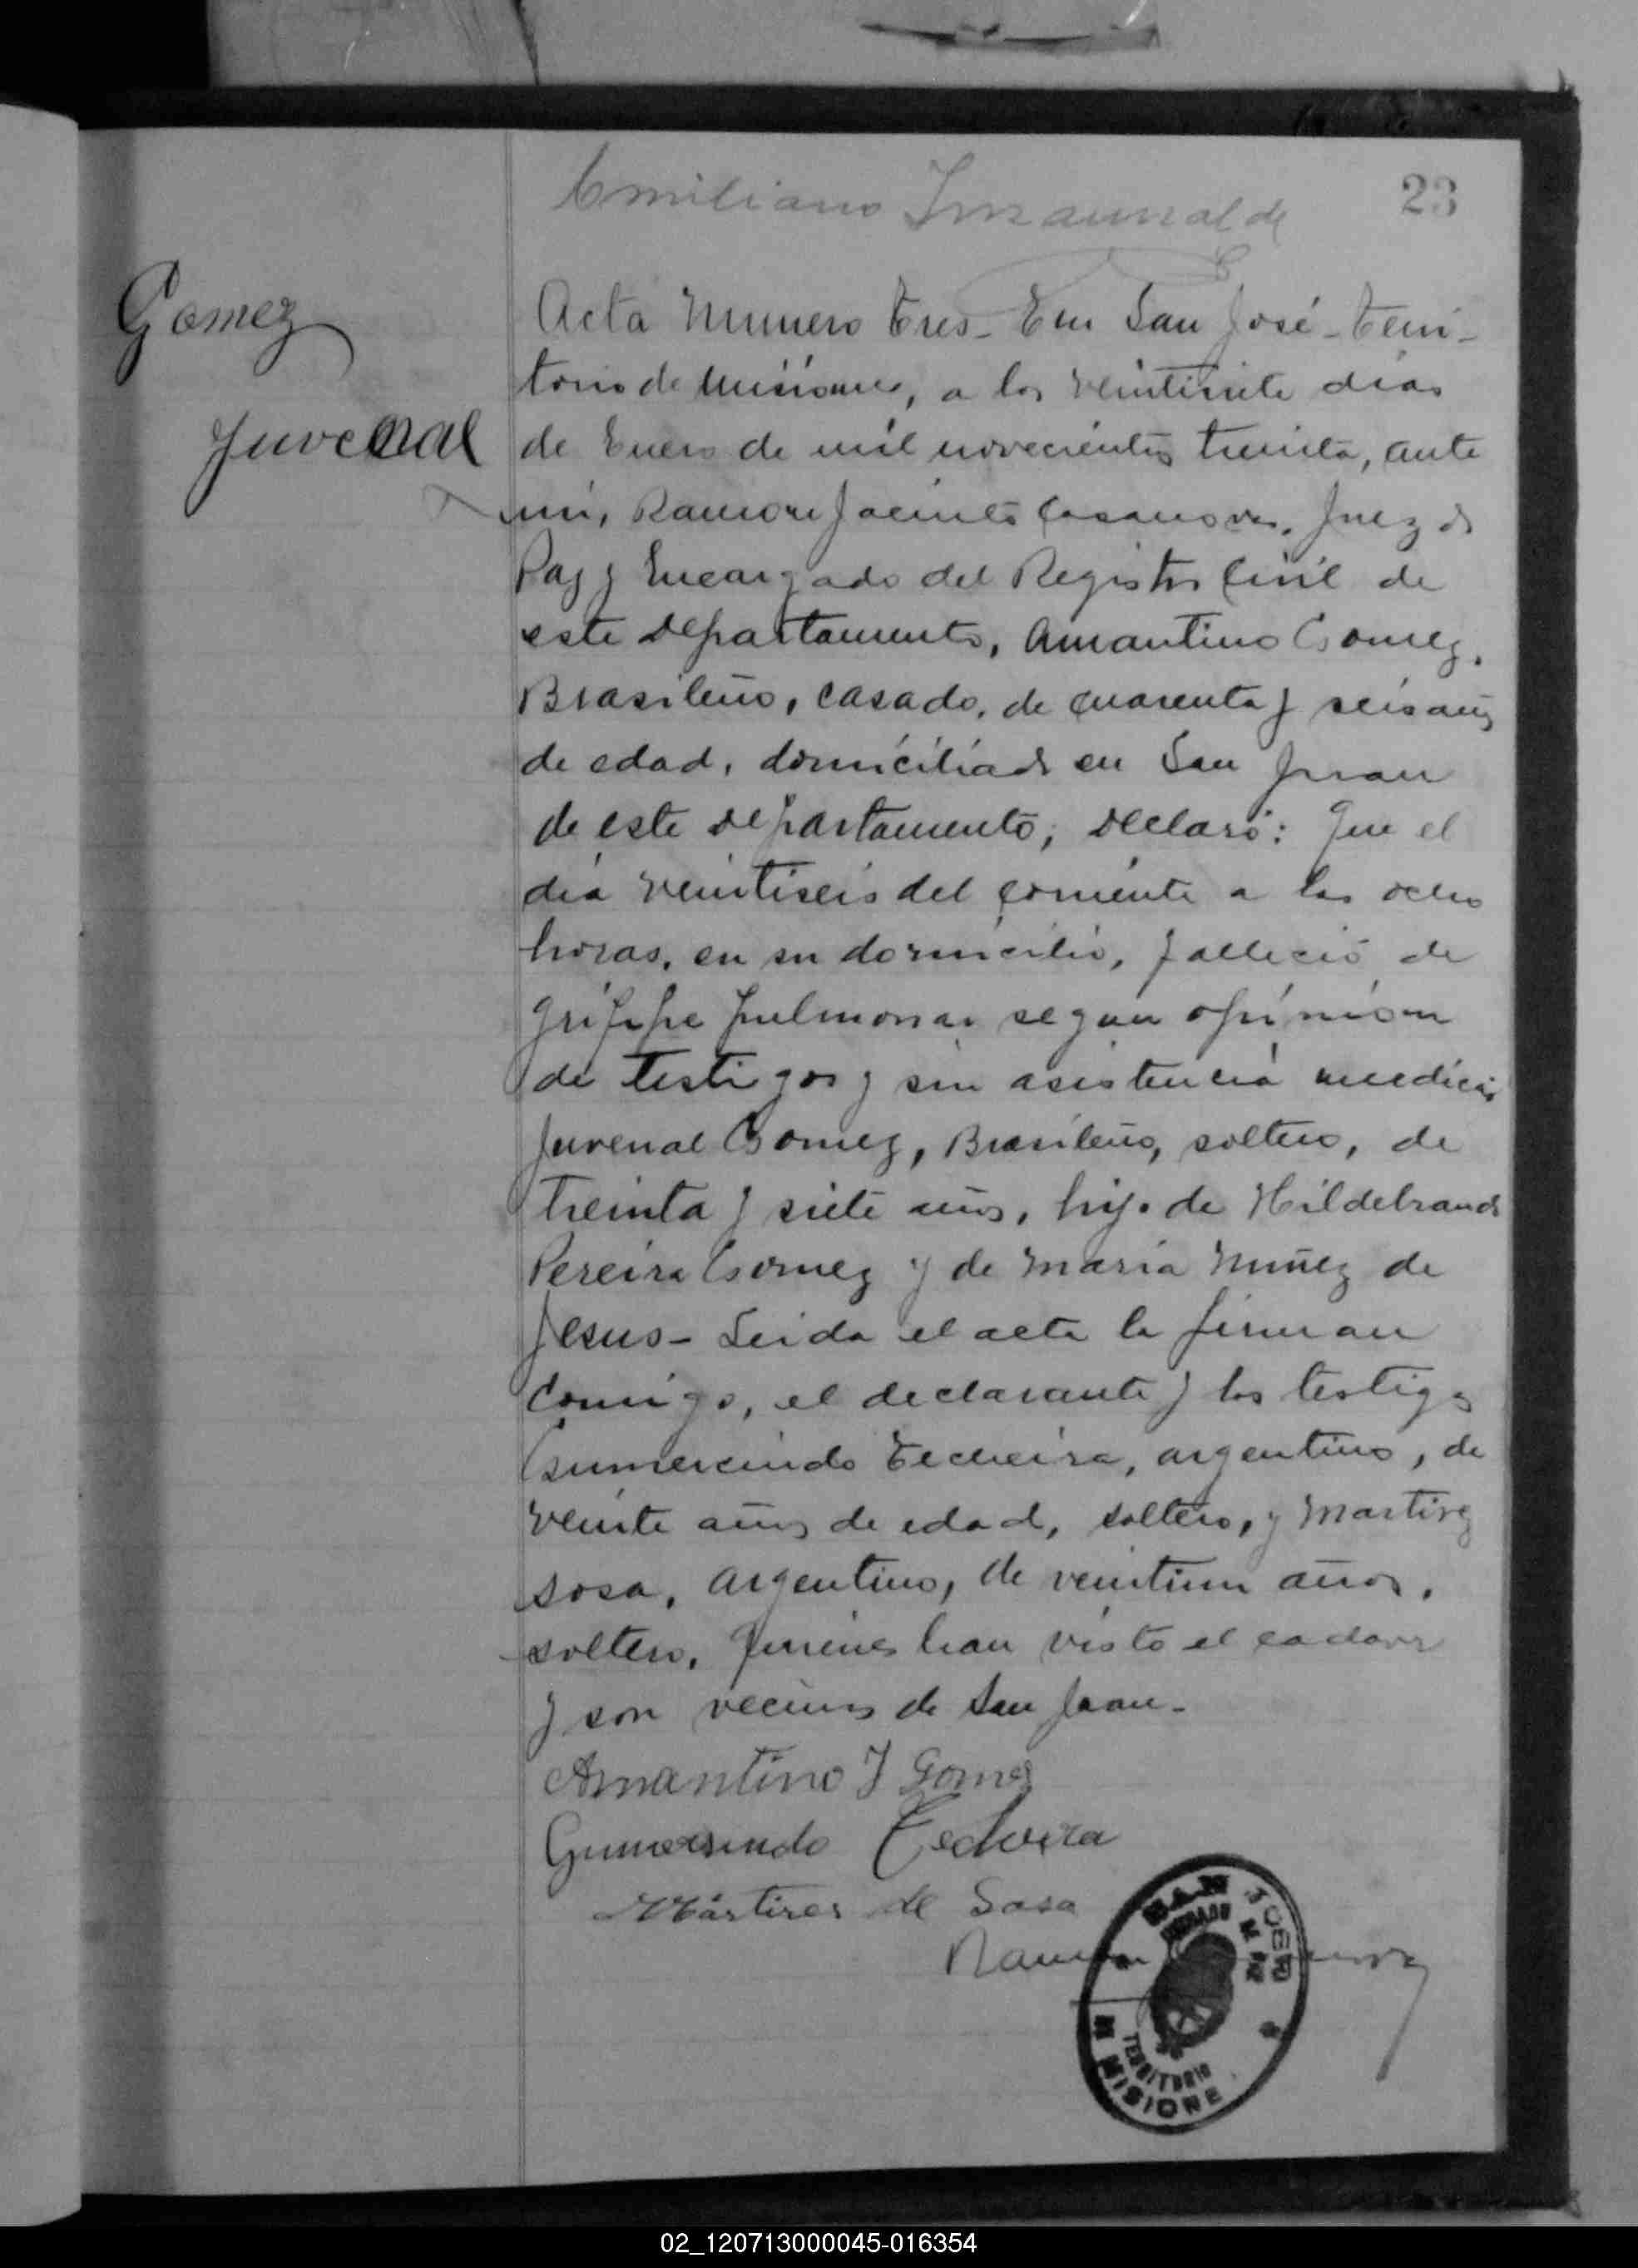 Emiliano
23
Gomez
Juvenal
Acta Numero Tres - En San José - Terri-
torio de Misiones, a los veintisiete dias
de Enero de mil novecientos treinta, ante
mi, Ramon Jacinto Casanova, Juez de
Paz y Encargado del Registro Civil de
este Departamento, Amantino Gomez,
Brasileño, casado, de cuarenta y seis años
de edad, domiciliado en San Juan
de este Departamento, declaró: Que el
dia veintiseis del corriente a las ocho
horas, en su domicilio, falleció de
grippe pulmonar segun opinion
de testigos y sin asistencia medica
Juvenal Gomez, Brasileño, soltero, de
treinta y siete años, hijo de Hildebrando
Pereira Gomez y de Maria Nuñez de
Jesus - Leida el acta la firman
comigo, el declarante y los testigos
Gumercindo Techeira, argentino, de
veinte años de edad, soltero, y Martirez
Sosa, argentino, de veintiun años,
soltero, quienes han visto el cadaver
y son vecinos de San Juan -
Amantino J Gomez
Gumersindo Techeira
Mártires de Sosa
Ramon
SAN JOSE
JUZGADO DE PAZ
TERRITORIO
MISIONE
02_120713000045-016354